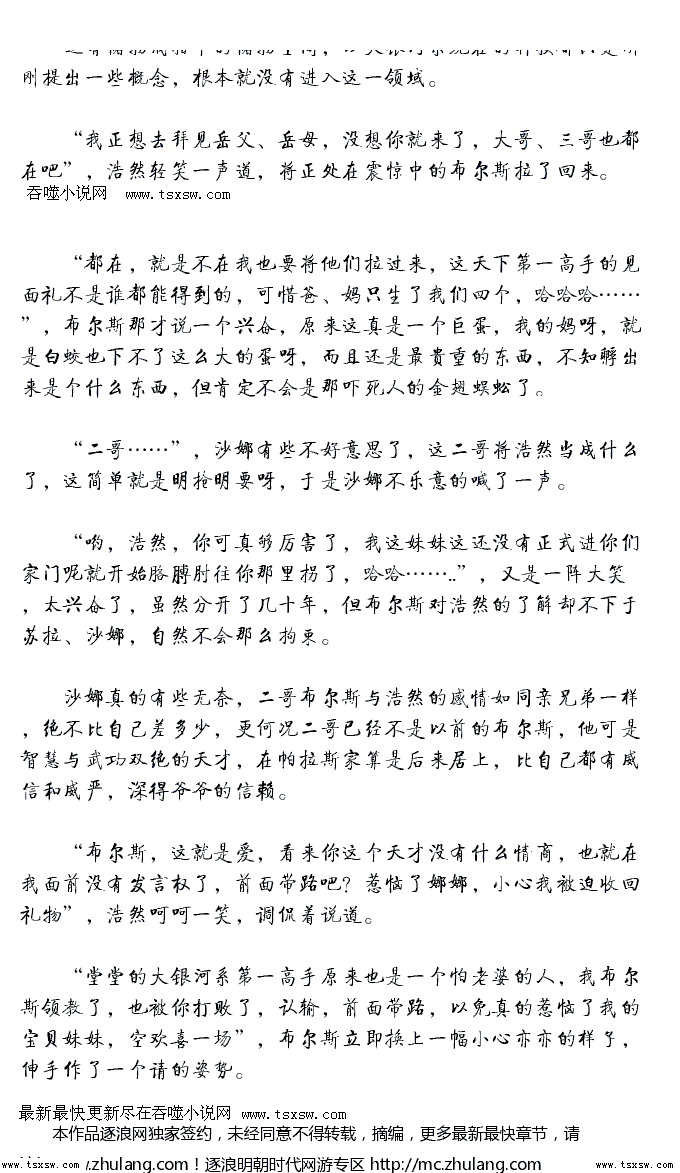 刚提出一些概念，根本就没有进入这一领域。
“我正想去拜见岳父、岳母，没想你就来了，大哥、三哥也都
在吧”，浩然轻笑一声道，将正处在震惊中的布尔斯拉了回来。
吞噬小说网 www.tsxsw.com
“都在，就是不在我也要将他们拉过来，这天下第一高手的见
面礼不是谁都能得到的，可惜爸、妈只生了我们四个，哈哈哈……
”，布尔斯那才说一个兴奋，原来这真是一个巨蛋，我的妈呀，就
是白蛟也下不了这么大的蛋呀，而且还是最貴重的东西，不知孵出
来是个什么东西，但肯定不会是那吓死人的金翅蜈蚣了。
“二哥……”，沙娜有些不好意思了，这二哥将浩然当成什么
了，这简单就是明抢明要呀，于是沙娜不乐意的喊了一声。
“哟，浩然，你可真够厉害了，我这妹妹这还没有正式进你们
家门呢就开始胳膊肘往你那里拐了，哈哈……..”，又是一阵大笑
，太兴奋了，虽然分开了几十年，但布尔斯对浩然的了解却不下于
苏拉、沙娜，自然不会那么拘束。
沙娜真的有些无奈，二哥布尔斯与浩然的感情如同亲兄弟一样
，绝不比自己差多少，更何况二哥已经不是以前的布尔斯，他可是
智慧与武功双绝的天才，在帕拉斯家算是后来居上，比自己都有威
信和威严，深得爷爷的信赖。
“布尔斯，这就是爱，看来你这个天才没有什么情商，也就在
我面前没有发言权了，前面带路吧？惹恼了娜娜，小心我被迫收回
礼物”，浩然呵呵一笑，调侃着说道。
“堂堂的大银河系第一高手原来也是一个怕老婆的人，我布尔
斯领教了，也被你打败了，认输，前面带路，以免真的惹恼了我的
宝贝妹妹，空欢喜一场”，布尔斯立即换上一幅小心亦亦的样子，
伸手作了一个请的姿势。
最新最快更新尽在吞噬小说网 www.tsxsw.com
本作品逐浪网独家签约，未经同意不得转载，摘编，更多最新最快章节，请
www.tsxsw.com zhulang.com！逐浪明朝时代网游专区 http://mc.zhulang.com www.tsxsw.com